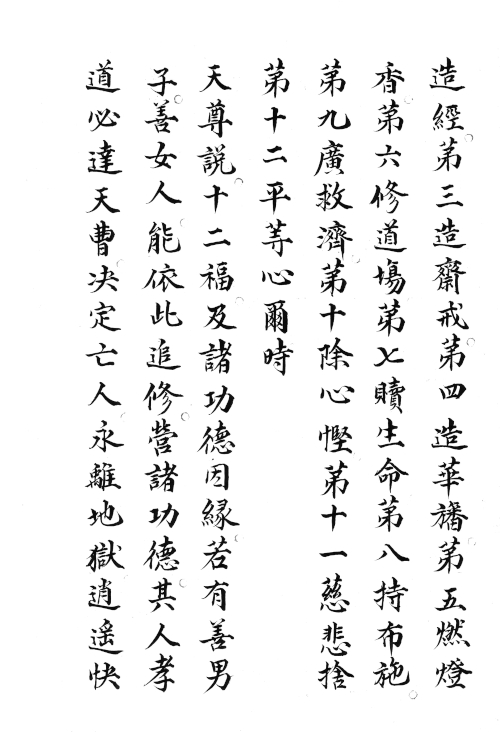 造經第三造齋戒第四造華旛第五燃燈
香第六修道場第七贖生命第八持布施
第九廣救濟第十除心慳第十一慈悲捨
第十二平等心爾時
天尊說十二福及諸功德因緣若有善男
子善女人能依此追修營諸功德其人孝
道必達天曹决定亡人永離地獄逍遥快